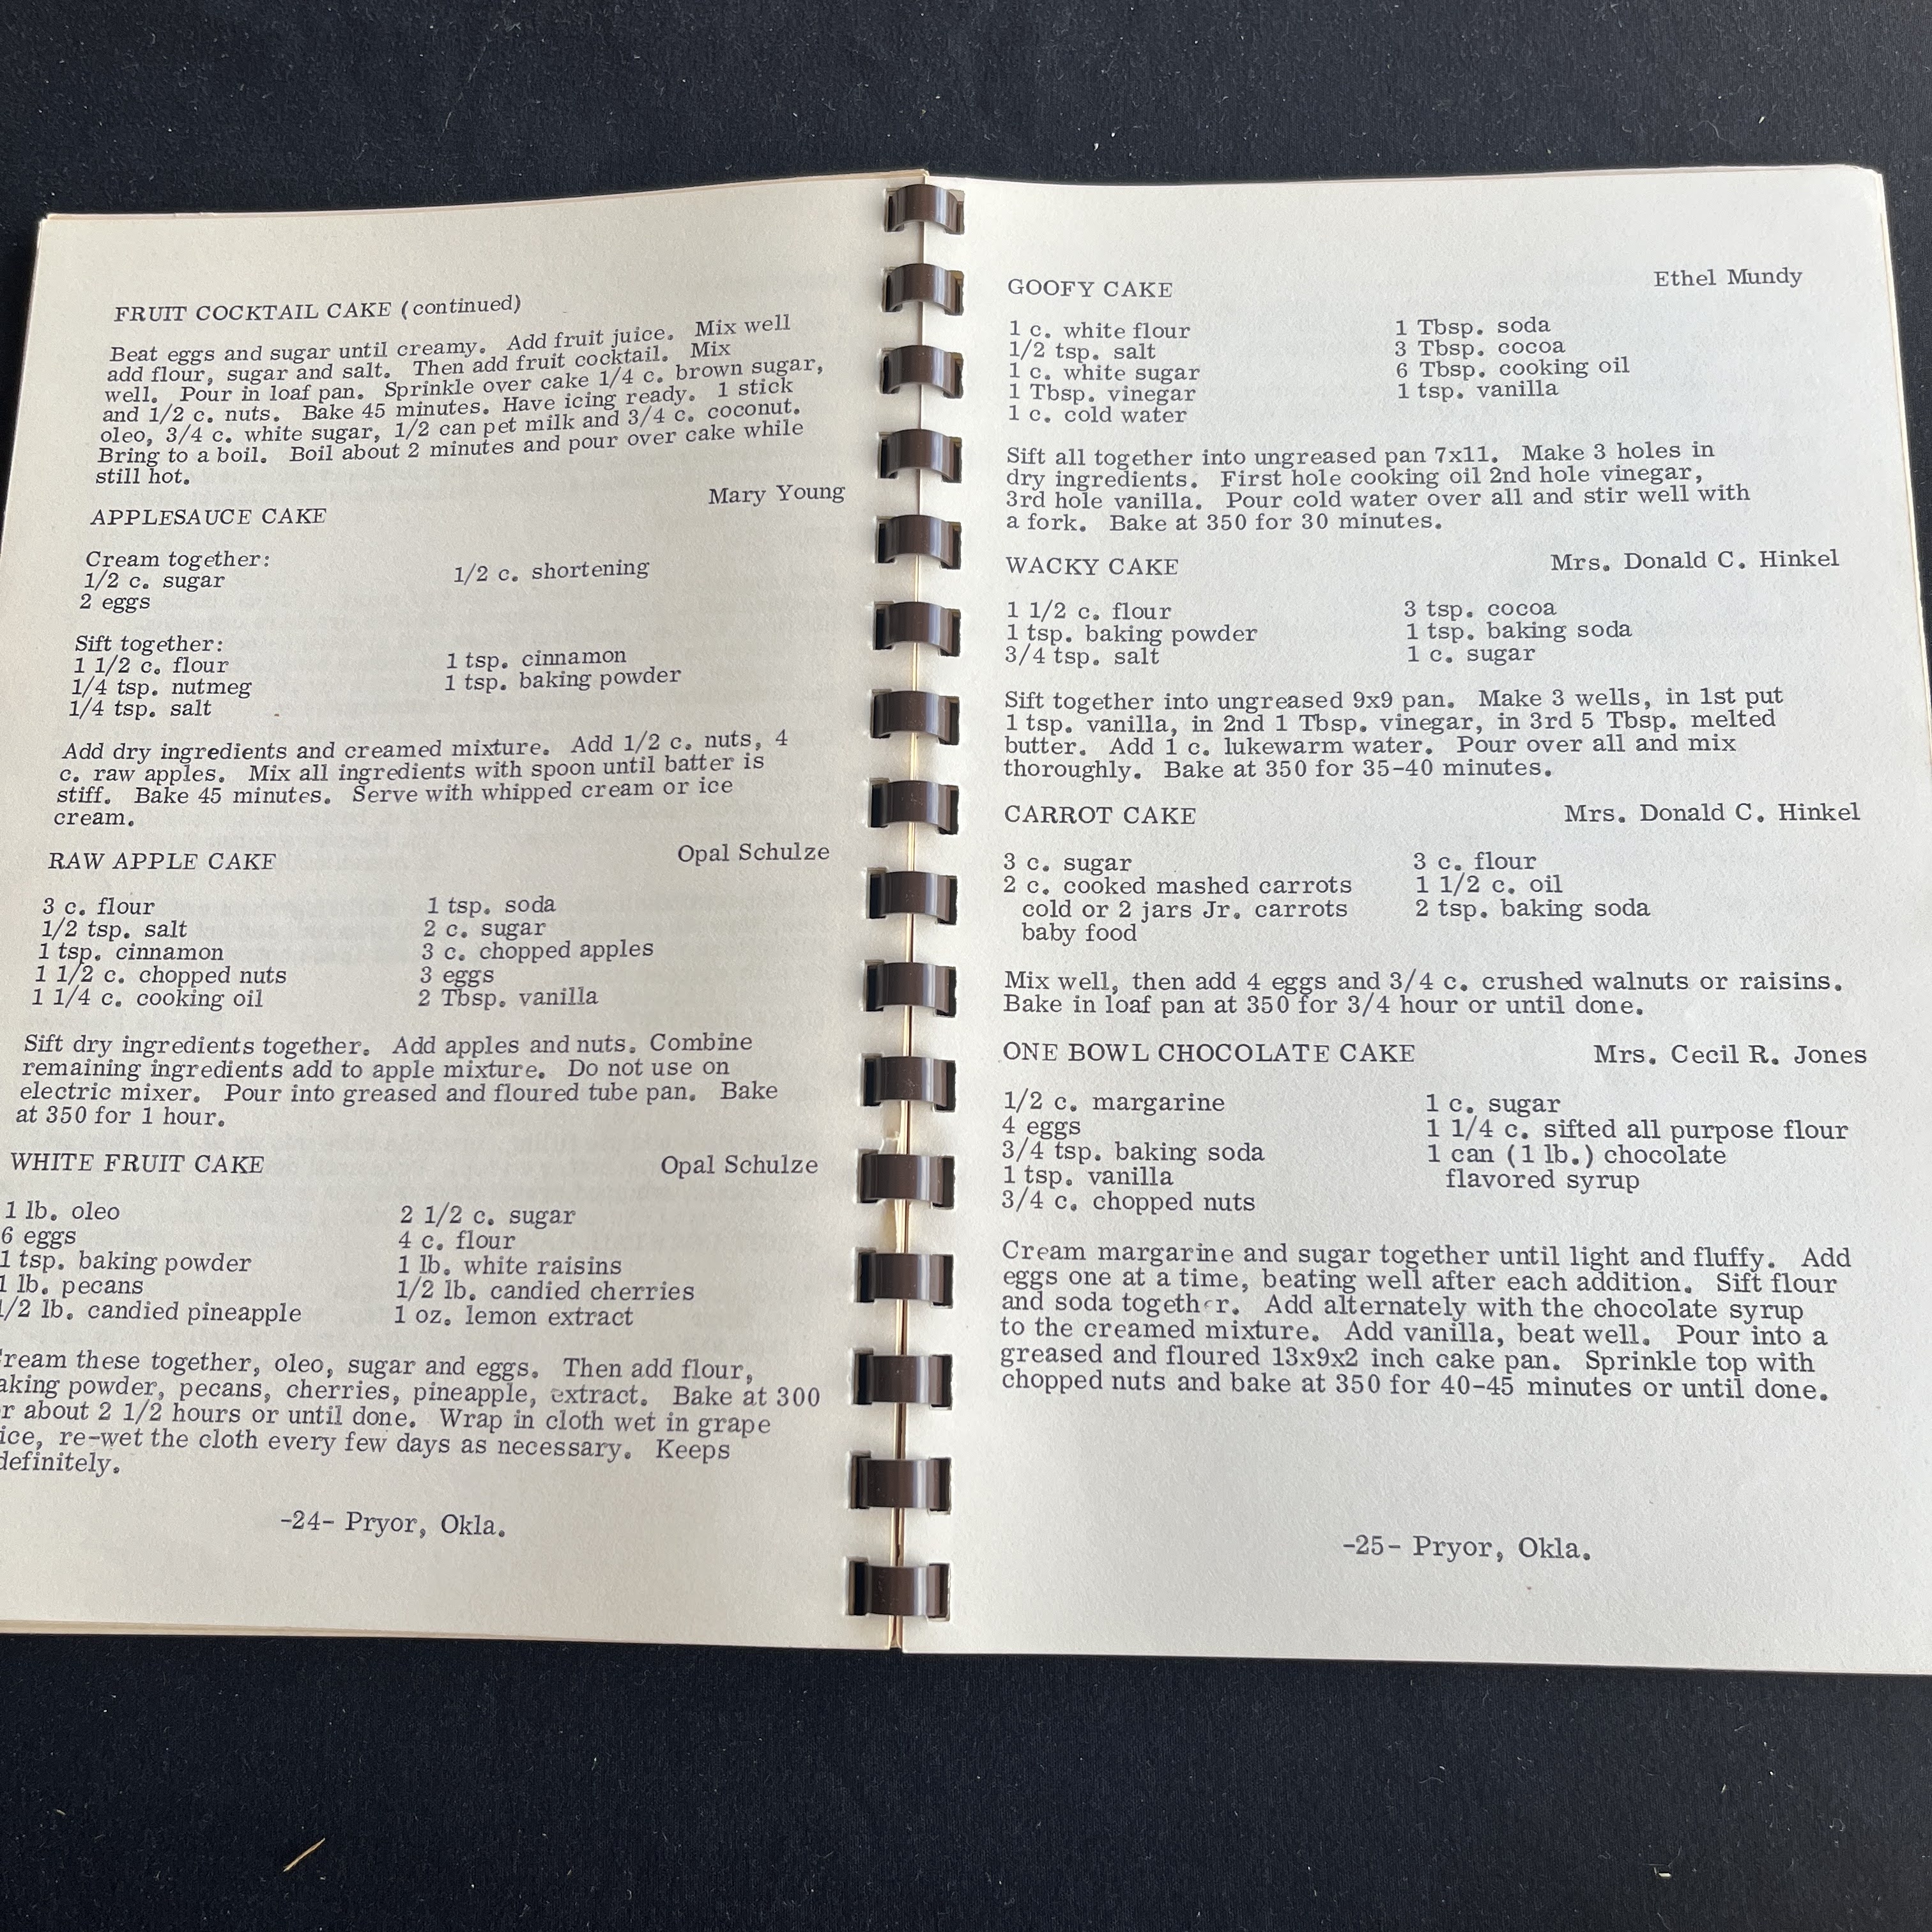 FRUIT COCKTAIL CAKE (continued)
Beat eggs and sugar until creamy. Add fruit juice. Mix well
add flour, sugar and salt. Then add fruit cocktail. Mix
well. Pour in loaf pan. Sprinkle over cake 1/4 c. brown sugar,
and 1/2 c. nuts. Bake 45 minutes. Have icing ready. 1 stick
oleo, 3/4 c. white sugar, 1/2 can pet milk and 3/4 c. coconut.
Bring to a boil. Boil about 2 minutes and pour over cake while
still hot.
APPLESAUCE CAKE Mary Young
Cream together:
1/2 c. sugar 1/2 c. shortening
2 eggs
Sift together:
1 1/2 c. flour 1 tsp. cinnamon
1/4 tsp. nutmeg 1 tsp. baking powder
1/4 tsp. salt
Add dry ingredients and creamed mixture. Add 1/2 c. nuts, 4
c. raw apples. Mix all ingredients with spoon until batter is
stiff. Bake 45 minutes. Serve with whipped cream or ice
cream.
RAW APPLE CAKE Opal Schulze
3 c. flour 1 tsp. soda
1/2 tsp. salt 2 c. sugar
1 tsp. cinnamon 3 c. chopped apples
1 1/2 c. chopped nuts 3 eggs
1 1/4 c. cooking oil 2 Tbsp. vanilla
Sift dry ingredients together. Add apples and nuts. Combine
remaining ingredients add to apple mixture. Do not use on
electric mixer. Pour into greased and floured tube pan. Bake
at 350 for 1 hour.
WHITE FRUIT CAKE Opal Schulze
1 lb. oleo 2 1/2 c. sugar
6 eggs 4 c. flour
1 tsp. baking powder 1 lb. white raisins
1 lb. pecans 1/2 lb. candied cherries
1/2 lb. candied pineapple 1 oz. lemon extract
ream these together, oleo, sugar and eggs. Then add flour,
aking powder, pecans, cherries, pineapple, extract. Bake at 300
r about 2 1/2 hours or until done. Wrap in cloth wet in grape
ice, re-wet the cloth every few days as necessary. Keeps
definitely.
-24- Pryor, Okla.
GOOFY CAKE Ethel Mundy
1 c. white flour 1 Tbsp. soda
1/2 tsp. salt 3 Tbsp. cocoa
1 c. white sugar 6 Tbsp. cooking oil
1 Tbsp. vinegar 1 tsp. vanilla
1 c. cold water
Sift all together into ungreased pan 7x11. Make 3 holes in
dry ingredients. First hole cooking oil 2nd hole vinegar,
3rd hole vanilla. Pour cold water over all and stir well with
a fork. Bake at 350 for 30 minutes.
WACKY CAKE Mrs. Donald C. Hinkel
1 1/2 c. flour 3 tsp. cocoa
1 tsp. baking powder 1 tsp. baking soda
3/4 tsp. salt 1 c. sugar
Sift together into ungreased 9x9 pan. Make 3 wells, in 1st put
1 tsp. vanilla, in 2nd 1 Tbsp. vinegar, in 3rd 5 Tbsp. melted
butter. Add 1 c. lukewarm water. Pour over all and mix
thoroughly. Bake at 350 for 35-40 minutes.
CARROT CAKE Mrs. Donald C. Hinkel
3 c. sugar 3 c. flour
2 c. cooked mashed carrots 1 1/2 c. oil
cold or 2 jars Jr. carrots 2 tsp. baking soda
baby food
Mix well, then add 4 eggs and 3/4 c. crushed walnuts or raisins.
Bake in loaf pan at 350 for 3/4 hour or until done.
ONE BOWL CHOCOLATE CAKE Mrs. Cecil R. Jones
1/2 c. margarine 1 c. sugar
4 eggs 1 1/4 c. sifted all purpose flour
3/4 tsp. baking soda 1 can (1 lb.) chocolate
1 tsp. vanilla flavored syrup
3/4 c. chopped nuts
Cream margarine and sugar together until light and fluffy. Add
eggs one at a time, beating well after each addition. Sift flour
and soda together. Add alternately with the chocolate syrup
to the creamed mixture. Add vanilla, beat well. Pour into a
greased and floured 13x9x2 inch cake pan. Sprinkle top with
chopped nuts and bake at 350 for 40-45 minutes or until done.
-25- Pryor, Okla.